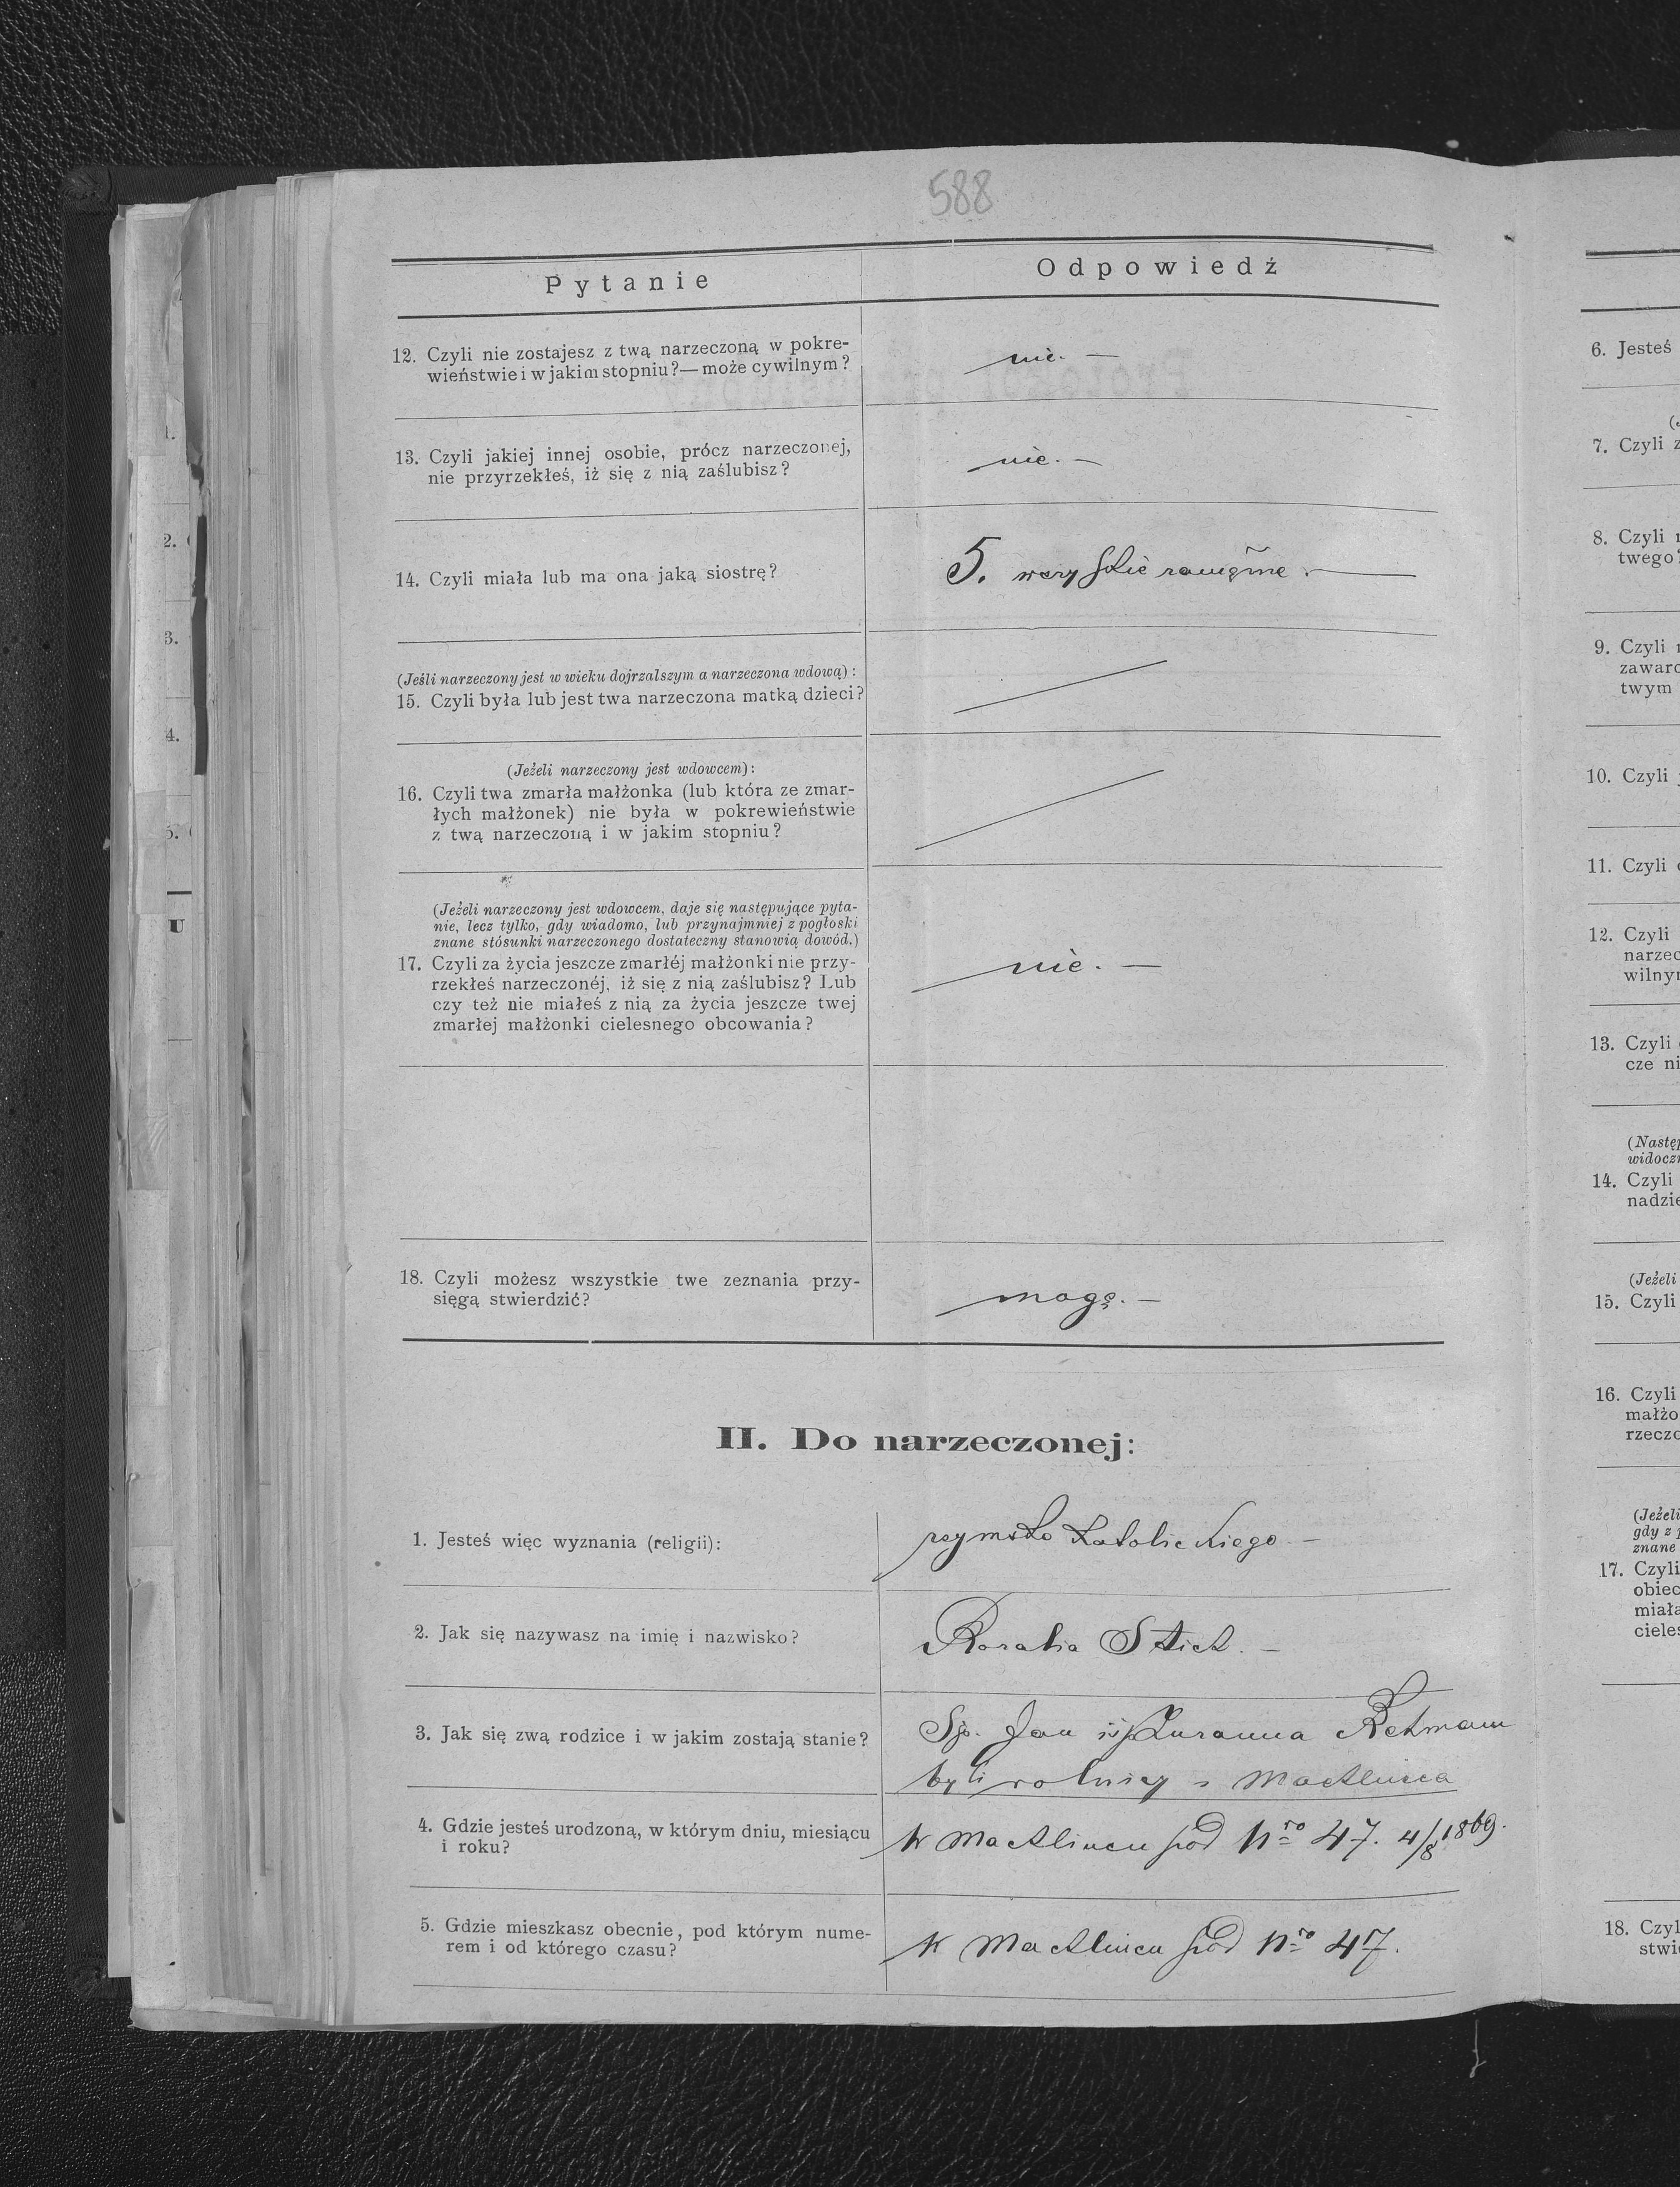 588
Pytanie
Odpowiedź
12. Czyli nie zostajesz z twą narzeczoną w pokre-
wieństwie i w jakim stopniu?— może cywilnym?
nie. —
13. Czyli jakiej innej osobie, prócz narzeczonej,
nie przyrzekłeś, iż się z nią zaślubisz?
nie. —
14. Czyli miała lub ma ona jaką siostrę?
5.
(Jeśli narzeczony jest w wieku dojrzalszym a narzeczona wdową):
15. Czyli była lub jest twa narzeczona matką dzieci?
(Jeżeli narzeczony jest wdowcem):
16. Czyli twa zmarła małżonka (lub która ze zmar-
łych małżonek) nie była w pokrewieństwie
z twą narzeczoną i w jakim stopniu?
(Jeżeli narzeczony jest wdowcem, daje się następujące pyta-
nie, lecz tylko, gdy wiadomo, lub przynajmniej z pogłoski
znane stósunki narzeczonego dostateczny stanowią dowód.)
17. Czyli za życia jeszcze zmarłéj małżonki nie przy-
rzekłeś narzeczonéj, iż się z nią zaślubisz? Lub
czy też nie miałeś z nią za życia jeszcze twej
zmarłej małżonki cielesnego obcowania?
nie. —
18. Czyli możesz wszystkie twe zeznania przy-
sięgą stwierdzić?
mogę. —
II. Do narzeczonej:
1. Jesteś więc wyznania (religii):
rzymsko katolickiego —
2. Jak się nazywasz na imię i nazwisko?
Rozalia —
3. Jak się zwą rodzice i w jakim zostają stanie?
Sp. Jan Zuzanna
byli rolnicy
4. Gdzie jesteś urodzoną, w którym dniu, miesiącu
i roku?
pod nro 47. 4/8 1869.
5. Gdzie mieszkasz obecnie, pod którym nume-
rem i od którego czasu?
pod nro 47.
1.
2.
3.
4.
5.
U
6. Jesteś
7. Czyli z
8. Czyli
twego?
9. Czyli
zawarc
twym
10. Czyli
11. Czyli
12. Czyli
narzec
wilnym
13. Czyli
cze ni
(Następ
widoczn
14. Czyli
nadzie
(Jeżeli
15. Czyli
16. Czyli
małżo
rzeczo
(Jeżeli
gdy z
znane
17. Czyli
obiec
miała
cieles
18. Czyl
stwi